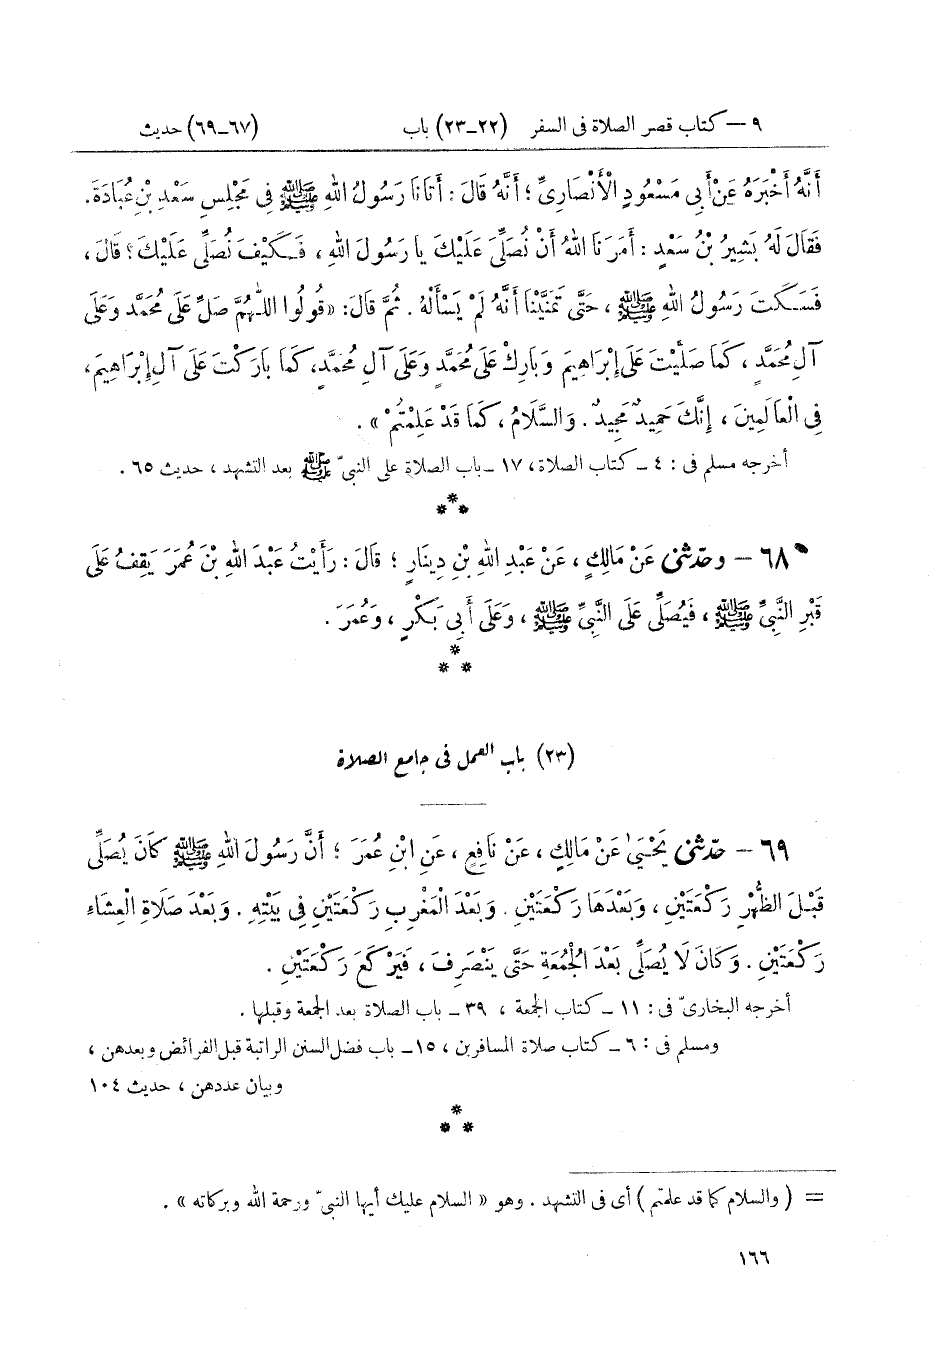 ٩ – كتاب قصر الصلاة فى السفر (٢٢–٢٣) باب (٦٧–٦٩) حديث
أَنَّهُ أَخْبَرَهُ عَنْ أَبِي مَسْعُودٍ الْأَنْصَارِىِّ ؛ أَنَّهُ قَالَ : أَتَانَا رَسُولُ اللهِ ﷺ فِى مَجْلِسِ سَعْدِ بْنِ عُبَادَةَ .
فَقَالَ لَهُ بَشِيرُ بْنُ سَعْدٍ : أَمَرَنَا اللهُ أَنْ نُصَلِّىَ عَلَيْكَ يَا رَسُولَ اللهِ ، فَكَيْفَ نُصَلِّى عَلَيْكَ ؟ قَالَ ،
فَسَكَتَ رَسُولُ اللهِ ﷺ ، حَتَّى تَمَنَّيْنَا أَنَّهُ لَمْ يَسْأَلْهُ . ثُمَّ قَالَ : «قُولُوا اللّٰهُمَّ صَلِّ عَلَى مُحَمَّدٍ وَعَلَى
آلِ مُحَمَّدٍ ، كَمَا صَلَّيْتَ عَلَى إِبْرَاهِيمَ وَبَارِكْ عَلَى مُحَمَّدٍ وَعَلَى آلِ مُحَمَّدٍ ، كَمَا بَارَكْتَ عَلَى آلِ إِبْرَاهِيمَ ،
فِى الْعَالَمِينَ ، إِنَّكَ حَمِيدٌ مَجِيدٌ . وَالسَّلَامُ ، كَمَا قَدْ عَلِمْتُمْ » .
أخرجه مسلم فى : ٤ – كتاب الصلاة ، ١٧ – باب الصلاة على النبىّ ﷺ بعد التشهد ، حديث ٦٥ .
* * *
٦٨ – وحدّثنى عَنْ مَالِكٍ ، عَنْ عَبْدِ اللهِ بْنِ دِينَارٍ ؛ قَالَ : رَأَيْتُ عَبْدَ اللهِ بْنَ عُمَرَ يَقِفُ عَلَى
قَبْرِ النَّبِىِّ ﷺ ، فَيُصَلِّى عَلَى النَّبِىِّ ﷺ ، وَعَلَى أَبِى بَكْرٍ ، وَعُمَرَ .
* * *
(٢٣) باب العمل فى جامع الصلاة
٦٩ – حدّثنى يَحْيَىٰ عَنْ مَالِكٍ ، عَنْ نَافِعٍ ، عَنِ ابْنِ عُمَرَ ؛ أَنَّ رَسُولَ اللهِ ﷺ كَانَ يُصَلِّى
قَبْلَ الظُّهْرِ رَكْعَتَيْنِ ، وَبَعْدَهَا رَكْعَتَيْنِ . وَبَعْدَ الْمَغْرِبِ رَكْعَتَيْنِ فِى بَيْتِهِ . وَبَعْدَ صَلَاةِ الْعِشَاءِ
رَكْعَتَيْنِ . وَكَانَ لَا يُصَلِّى بَعْدَ الْجُمُعَةِ حَتَّى يَنْصَرِفَ ، فَيَرْكَعَ رَكْعَتَيْنِ .
أخرجه البخارىّ فى : ١١ – كتاب الجمعة ، ٣٩ – باب الصلاة بعد الجمعة وقبلها .
ومسلم فى : ٦ – كتاب صلاة المسافرين ، ١٥ – باب فضل السنن الراتبة قبل الفرائض وبعدهن ،
وبيان عددهن ، حديث ١٠٤
* * *
= ( والسلام كما قد علمتم ) أى فى التشهد . وهو « السلام عليك أيها النبىّ ورحمة الله وبركاته » .
١٦٦